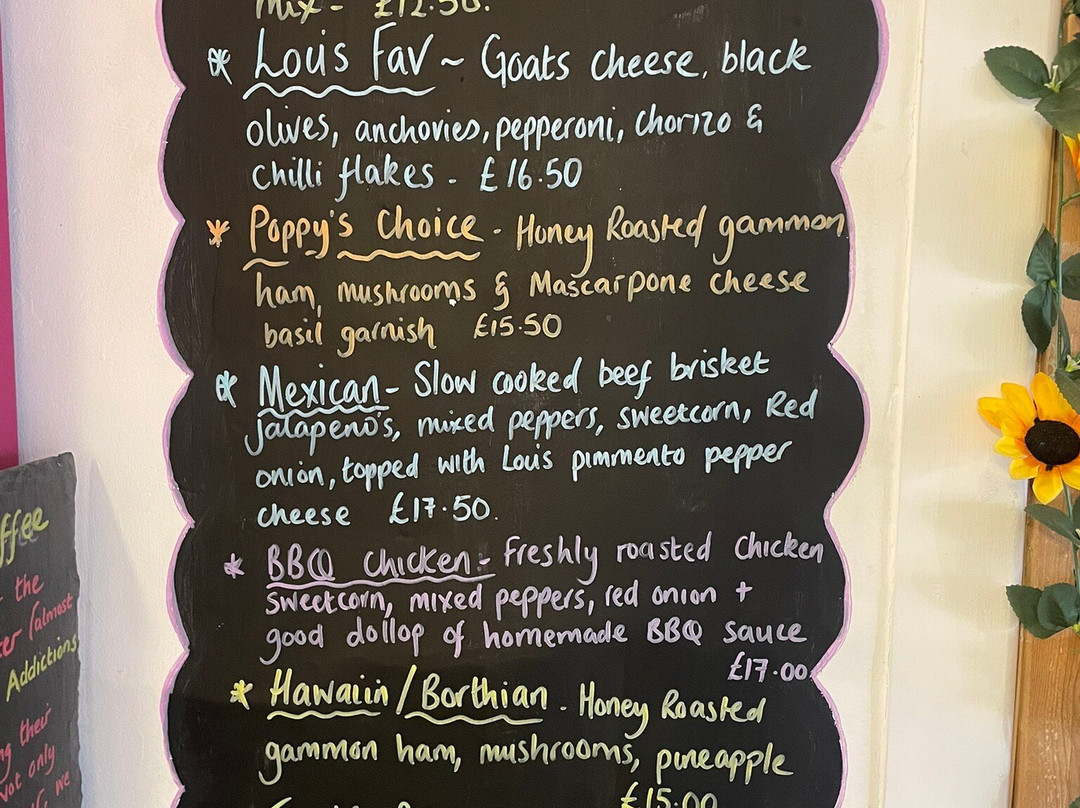 mix - £12.50.
* Louis Fav ~ Goats cheese, black
olives, anchovies, pepperoni, chorizo &
chilli flakes - £16.50
* Poppy's Choice - Honey Roasted gammon
ham, mushrooms & Mascarpone cheese
basil garnish £15.50
* Mexican - Slow cooked beef brisket
jalapeno's, mixed peppers, sweetcorn, Red
onion, topped with Louis pimmento pepper
cheese £17.50.
* BBQ Chicken - Freshly roasted Chicken
sweetcorn, mixed peppers, red onion +
good dollop of homemade BBQ sauce
£17.00
* Hawaiin / Borthian - Honey Roasted
gammon ham, mushrooms, pineapple
£15.00
ffee
the
(almost
Addictions
their
Not only
we